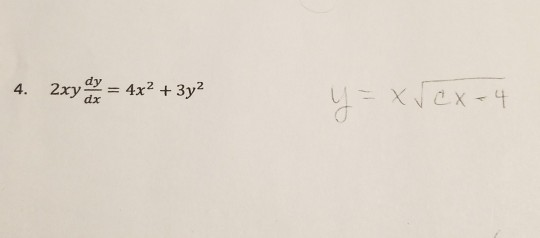 4. 2xy dy/dx = 4x² + 3y²
y = x√(cx - 4)